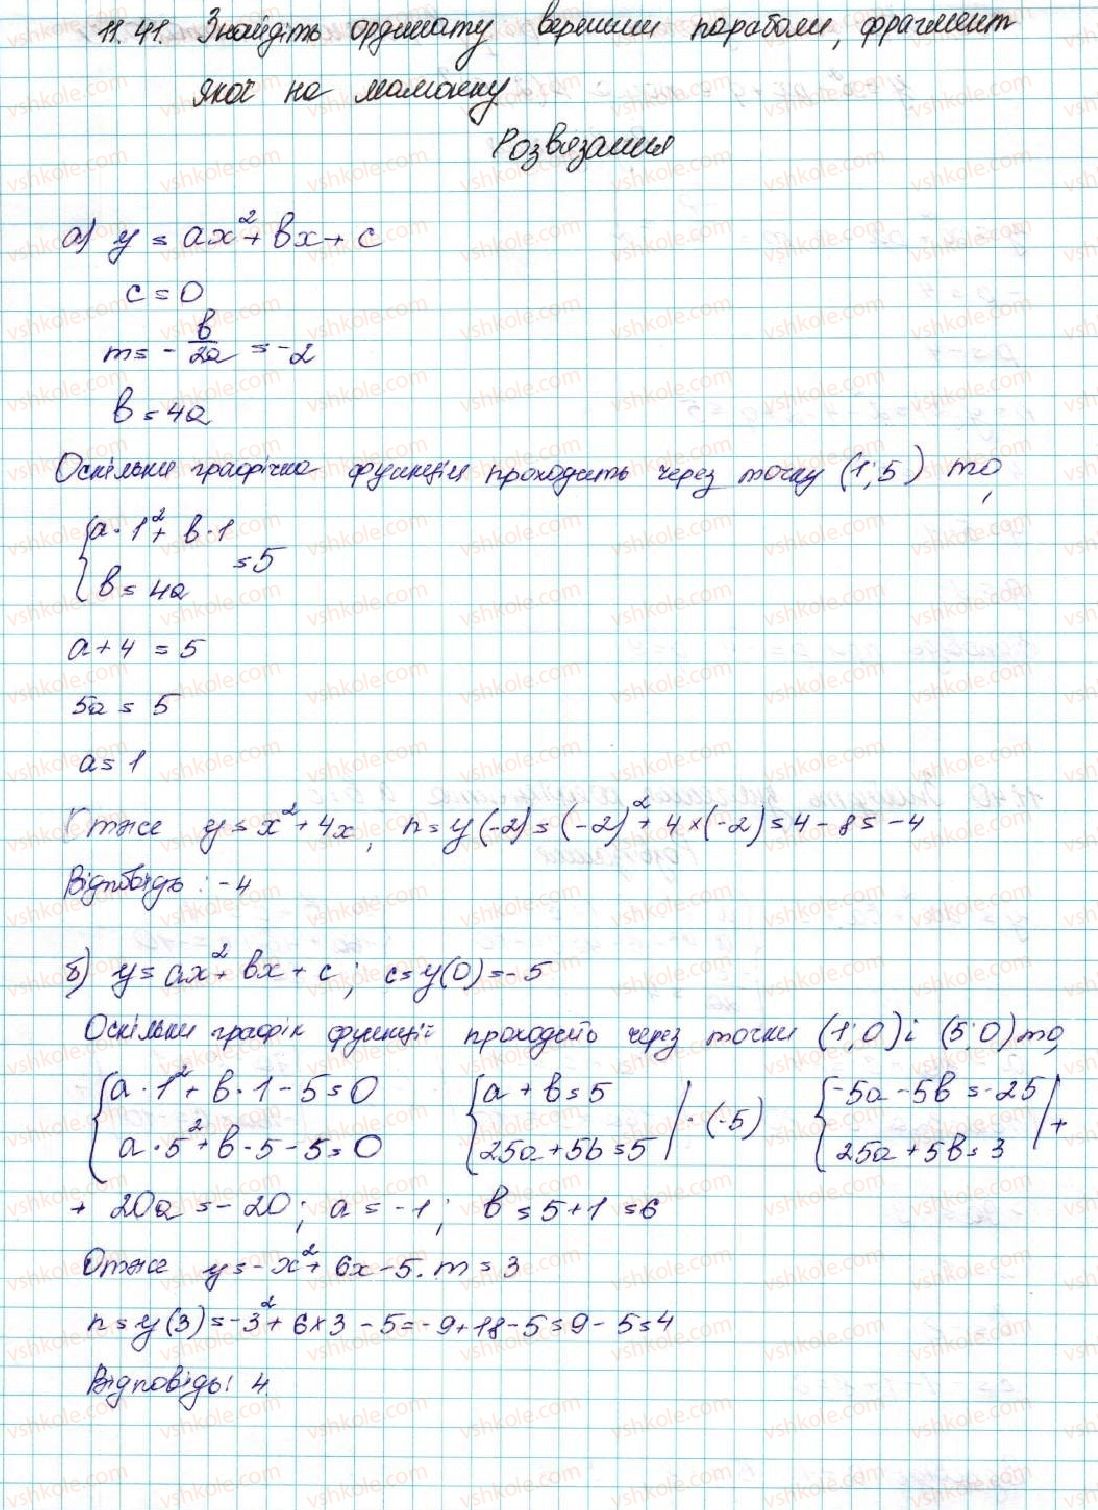 11.41. Знайдіть ординату вершини параболи, фрагмент
якої на малюнку
Розв'язання
а) y = ax² + bx + c
c = 0
m = - b/2a = -2
b = 4a
Оскільки графічна функція проходить через точку (1; 5) то,
{a · 1² + b · 1 = 5
b = 4a
a + 4 = 5
5a = 5
a = 1
Отже y = x² + 4x, n = y(-2) = (-2)² + 4 × (-2) = 4 - 8 = -4
Відповідь: -4
б) y = ax² + bx + c; c = y(0) = -5
Оскільки графік функції проходить через точки (1; 0) і (5; 0) то,
{a · 1² + b · 1 - 5 = 0 {a + b = 5 | · (-5) {-5a - 5b = -25 | +
a · 5² + b · 5 - 5 = 0 25a + 5b = 5 25a + 5b = 3
+ 20a = -20; a = -1; b = 5 + 1 = 6
Отже y = -x² + 6x - 5. m = 3
n = y(3) = -3² + 6 × 3 - 5 = -9 + 18 - 5 = 9 - 5 = 4
Відповідь: 4
vshkole.com